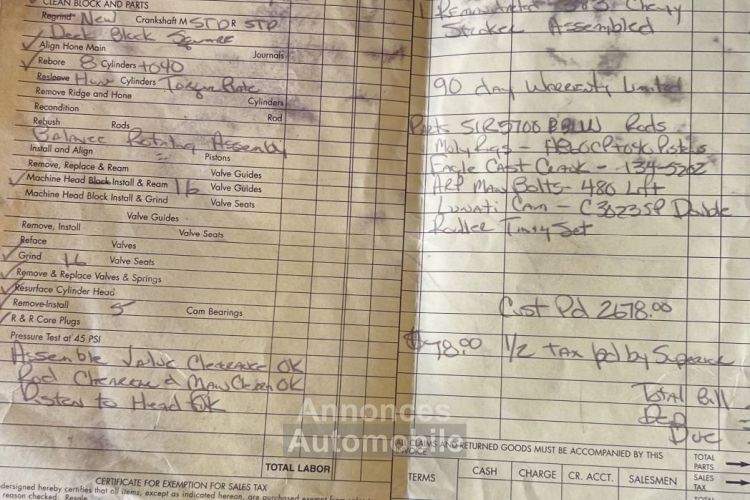 CLEAN BLOCK AND PARTS
Regrind New Crankshaft M STD R STD
Deck Block Square
Align Hone Main Journals
Rebore 8 Cylinders +040
Resleeve Hone Cylinders Torque Plate
Remove Ridge and Hone Cylinders
Recondition Rod
Rebush Rods
Balance Rotating Assembly
Install and Align Pistons
Remove, Replace & Ream Valve Guides
Machine Head Block Install & Ream 16 Valve Guides
Machine Head Block Install & Grind Valve Seats
Valve Guides
Remove, Install Valve Seats
Reface Valves
Grind 16 Valve Seats
Remove & Replace Valves & Springs
Resurface Cylinder Head
Remove-Install 5 Cam Bearings
R & R Core Plugs
Pressure Test at 45 PSI
Assemble Valve Clearance OK
Rod Clearance & Main Clean OK
Piston to Head OK
TOTAL LABOR
CERTIFICATE FOR EXEMPTION FOR SALES TAX
dersigned hereby certifies that all items, except as indicated hereon, are purchased exempt from sales
reason checked. Resale
1 Remanufactured 383 Chevy
Stroker Assembled
90 day Warranty Limited
Parts SIR5700BBLW Rods
Moly Rings - H860CP+040 Pistons
Eagle Cast Crank - 134-5202
ARP Main Bolts - 480 Lift
Lunati Cam - C3023SP Double
Roller Timing Set
Cust Pd 2678.00
$78.00 1/2 tax pd by
Total Bill
Dep
Due
Annonces
Automobile
ALL CLAIMS AND RETURNED GOODS MUST BE ACCOMPANIED BY THIS
INVOICE
TERMS CASH CHARGE CR. ACCT. SALESMEN
TOTAL PARTS
SALES TAX